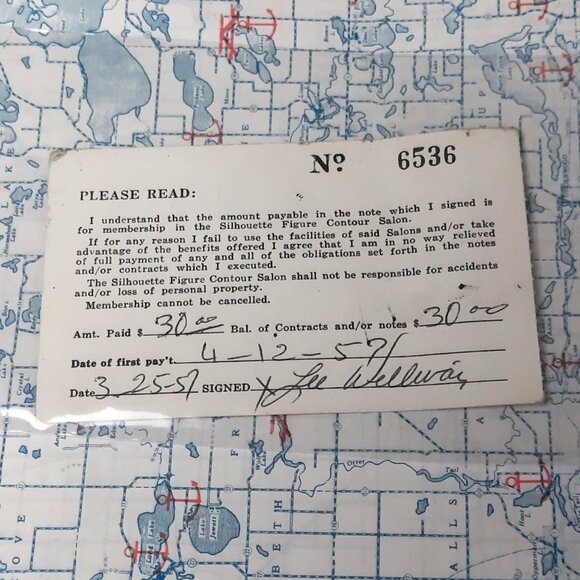 Nº 6536
PLEASE READ:
I understand that the amount payable in the note which I signed is
for membership in the Silhouette Figure Contour Salon.
If for any reason I fail to use the facilities of said Salons and/or take
advantage of the benefits offered I agree that I am in no way relieved
of full payment of any and all of the obligations set forth in the notes
and/or contracts which I executed.
The Silhouette Figure Contour Salon shall not be responsible for accidents
and/or loss of personal property.
Membership cannot be cancelled.
Amt. Paid $ 30 00 Bal. of Contracts and/or notes $ 30 00
Date of first pay't. 4-12-57
Date 3 25 57 SIGNED X Lee
Otter Tail
Long Lake
Lake Jewett